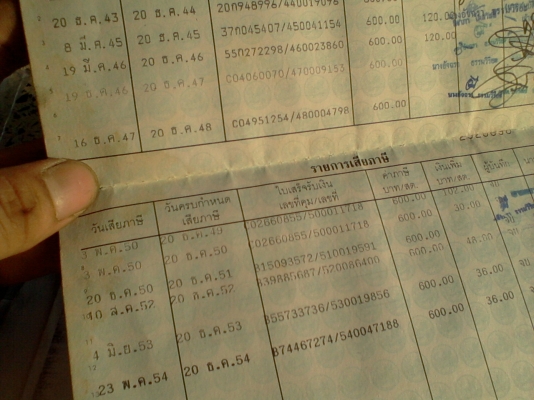 20 ธ.ค.43 20 ธ.ค.44 20ก948996/440019096 600.00
8 มี.ค.45 20 ธ.ค.45 37ก045407/450041154 600.00 120.00
19 มี.ค.46 20 ธ.ค.46 55ก272298/460023860 600.00 120.00
19 ธ.ค.46 20 ธ.ค.47 C04060070/470009153 600.00
16 ธ.ค.47 20 ธ.ค.48 C04951254/480004798 600.00
รายการเสียภาษี
วันเสียภาษี วันครบกำหนดเสียภาษี ใบเสร็จรับเงิน เล่มที่คุม/เลขที่ ค่าภาษี บาท/สต. เงินเพิ่ม บาท/สต.
3 พ.ค.50 20 ธ.ค.49 C02660855/500011718 600.00 102.00
3 พ.ค.50 20 ธ.ค.50 C02660855/500011718 600.00 30.00
20 ธ.ค.50 20 ธ.ค.51 815093572/510019591 600.00
10 ส.ค.52 20 ธ.ค.52 600.00 48.00
4 มิ.ย.53 20 ธ.ค.53 855733736/530019856 600.00 36.00
23 พ.ค.54 20 ธ.ค.54 874467274/540047188 600.00 36.00